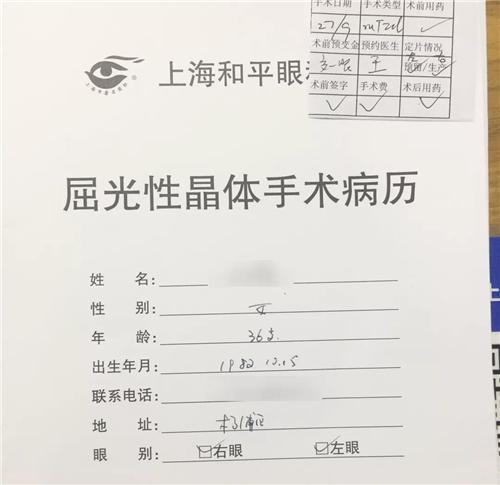 手术日期 手术类型 术前用药
27/9
术前预受金 预约医生 定片情况
王 预留/生产
术前签字 手术费 术后用药
上海和平眼
屈光性晶体手术病历
姓 名:
性 别: 女
年 龄: 36岁
出生年月: 1982 12.15
联系电话:
地 址: 杨浦区
眼 别: 右眼 左眼